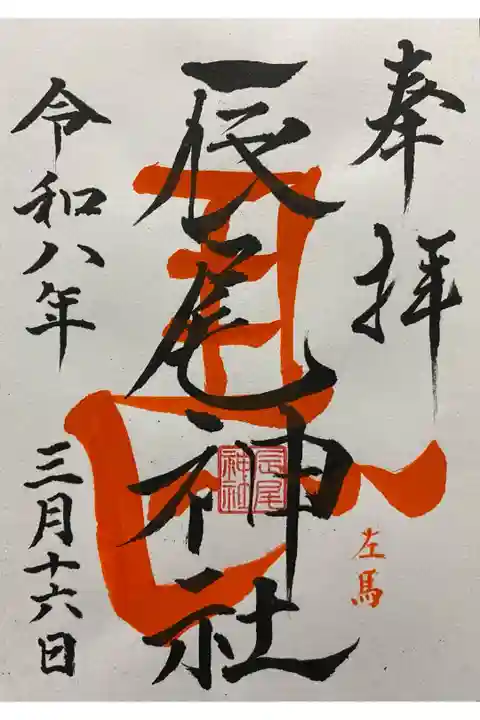 奉拝
左馬
辰尾神社
辰尾
神社
令和八年
三月十六日